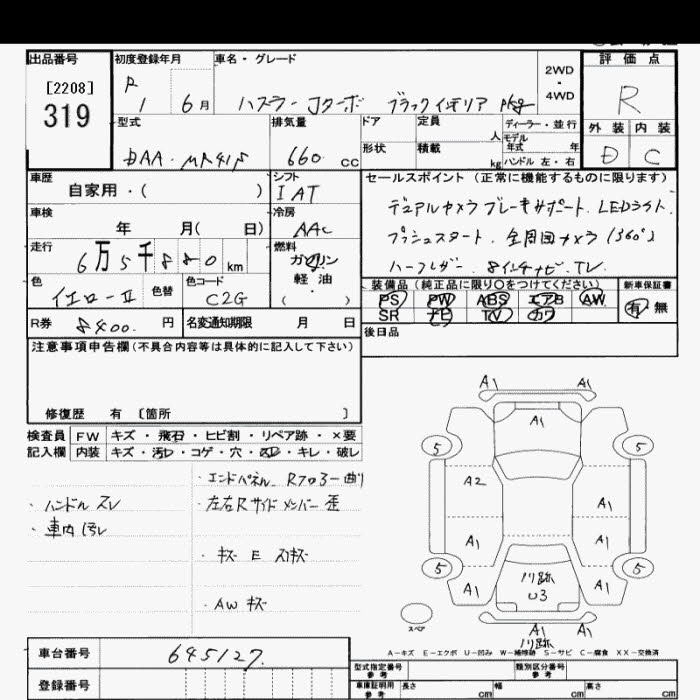 出品番号
[2208]
319
初度登録年月
R 1 6月
車名・グレード
ハスラー Jターボ ブラックインテリア pkg
2WD
・
4WD
評価点
R
外装 内装
D C
型式
DAA・MR41S
排気量
660 CC
ドア
形状
定員
人
積載
kg
ディーラー・並行
モデル年式 年
ハンドル 左・右
車歴
自家用・( )
シフト
IAT
車検
年 月( 日)
冷房
AAC
走行
6万5千880km
燃料
ガソリン
軽油
( )
色
イエロー-II
色替
色コード
C2G
R券
8400. 円
名変通知期限 月 日
セールスポイント (正常に機能するものに限ります)
デュアルカメラブレーキサポート. LEDライト.
プッシュスタート. 全周囲カメラ(360°)
ハーフレザー. 8インチナビ. TV.
装備品 (純正品に限り○をつけてください)
新車保証書
PS PW ABS エアB AW
SR ナビ TV カワ
有 無
後日品
注意事項申告欄(不具合内容等は具体的に記入して下さい)
修復歴 有 〔箇所 〕
検査員 FW キズ・飛石・ヒビ割・リペア跡・×要
記入欄 内装 キズ・汚レ・コゲ・穴・スレ・キレ・破レ
・エンドパネル Rフロアー曲り
・ハンドル スレ
・左右Rサイドメンバー 歪
・車内 汚レ
・キズ E スリキズ
・AW キズ
A1 A1
A1
5 5
A2
A1
A1 A1
5 5
A1 A1
U3
スペア
A1 A1
A-キズ E-エクボ U-凹み W-補修跡 S-サビ C-腐食 XX-交換済
車台番号
645127.
登録番号
型式指定番号
参考
類別区分番号
参考
車庫証明用
参考
長さ cm 幅 cm 高さ cm